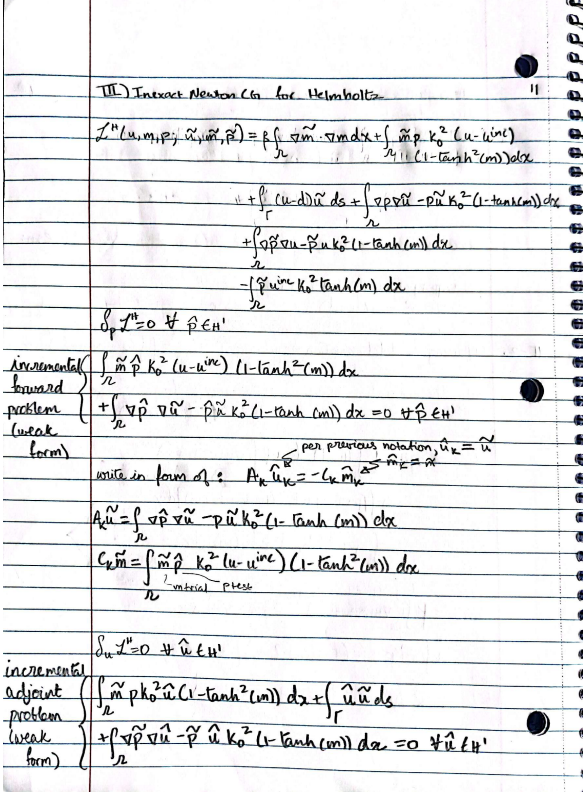 III) Inexact Newton CG for Helmholtz
11
ℒᴴ(u,m,p; ũ,m̃,p̃) = β∫_Ω ∇m̃ · ∇m dx + ∫_Ω m̃ p k₀² (u-uⁱⁿᶜ)
" (1-tanh²(m)) dx
" + ∫_Γ (u-d)ũ ds + ∫_Ω ∇p∇ũ - pũ k₀² (1-tanh(m)) dx
+ ∫_Ω ∇p̃ ∇u - p̃ u k₀² (1-tanh(m)) dx
- ∫_Ω p̃ uⁱⁿᶜ k₀² tanh(m) dx
δ_p ℒᴴ = 0 ∀ p̂ ∈ H¹
incremental forward problem (weak form)
∫_Ω m̃ p̂ k₀² (u-uⁱⁿᶜ) (1-tanh²(m)) dx
+ ∫_Ω ∇p̂ ∇ũ - p̂ũ k₀² (1-tanh(m)) dx = 0 ∀ p̂ ∈ H¹
per previous notation, û_k = ũ
write in form of : A_k û_k = -C_k m̂_k
m̂_k = m̃
A_k ũ = ∫_Ω ∇p̂ ∇ũ - pũ k₀² (1-tanh(m)) dx
C_k m̃ = ∫_Ω m̃ p̂ k₀² (u-uⁱⁿᶜ) (1-tanh²(m)) dx
mtrial ptest
δ_u ℒᴴ = 0 ∀ û ∈ H¹
incremental adjoint problem (weak form)
∫_Ω m̃ p k₀² û (1-tanh²(m)) dx + ∫_Γ û ũ ds
+ ∫_Ω ∇p̃ ∇û - p̃ û k₀² (1-tanh(m)) dx = 0 ∀ û ∈ H¹